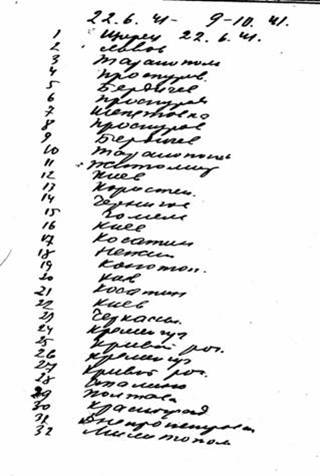 22.6.41- 9-10.41.
1 Щирец 22.6.41.
2 Львов
3 Тарнополь
4 Проскуров.
5 Бердичев
6 Проскуров
7 Шепетовка
8 Проскуров
9 Бердичев
10 Тарнополь
11 Житомир
12 Киев
13 Коростен.
14 Чернигов
15 Гомель
16 Киев
17 Косатин
18 Нежин
19 Конотоп.
20 Киев
21 Косатин
22 Киев
23 Черкассы.
24 Кременчуг
25 Кривой рог.
26 Кременчуг
27 Кривой рог.
28 Сталино
29 Полтава
30 Красноград
31 Днепропетровск
32 Мелитополь